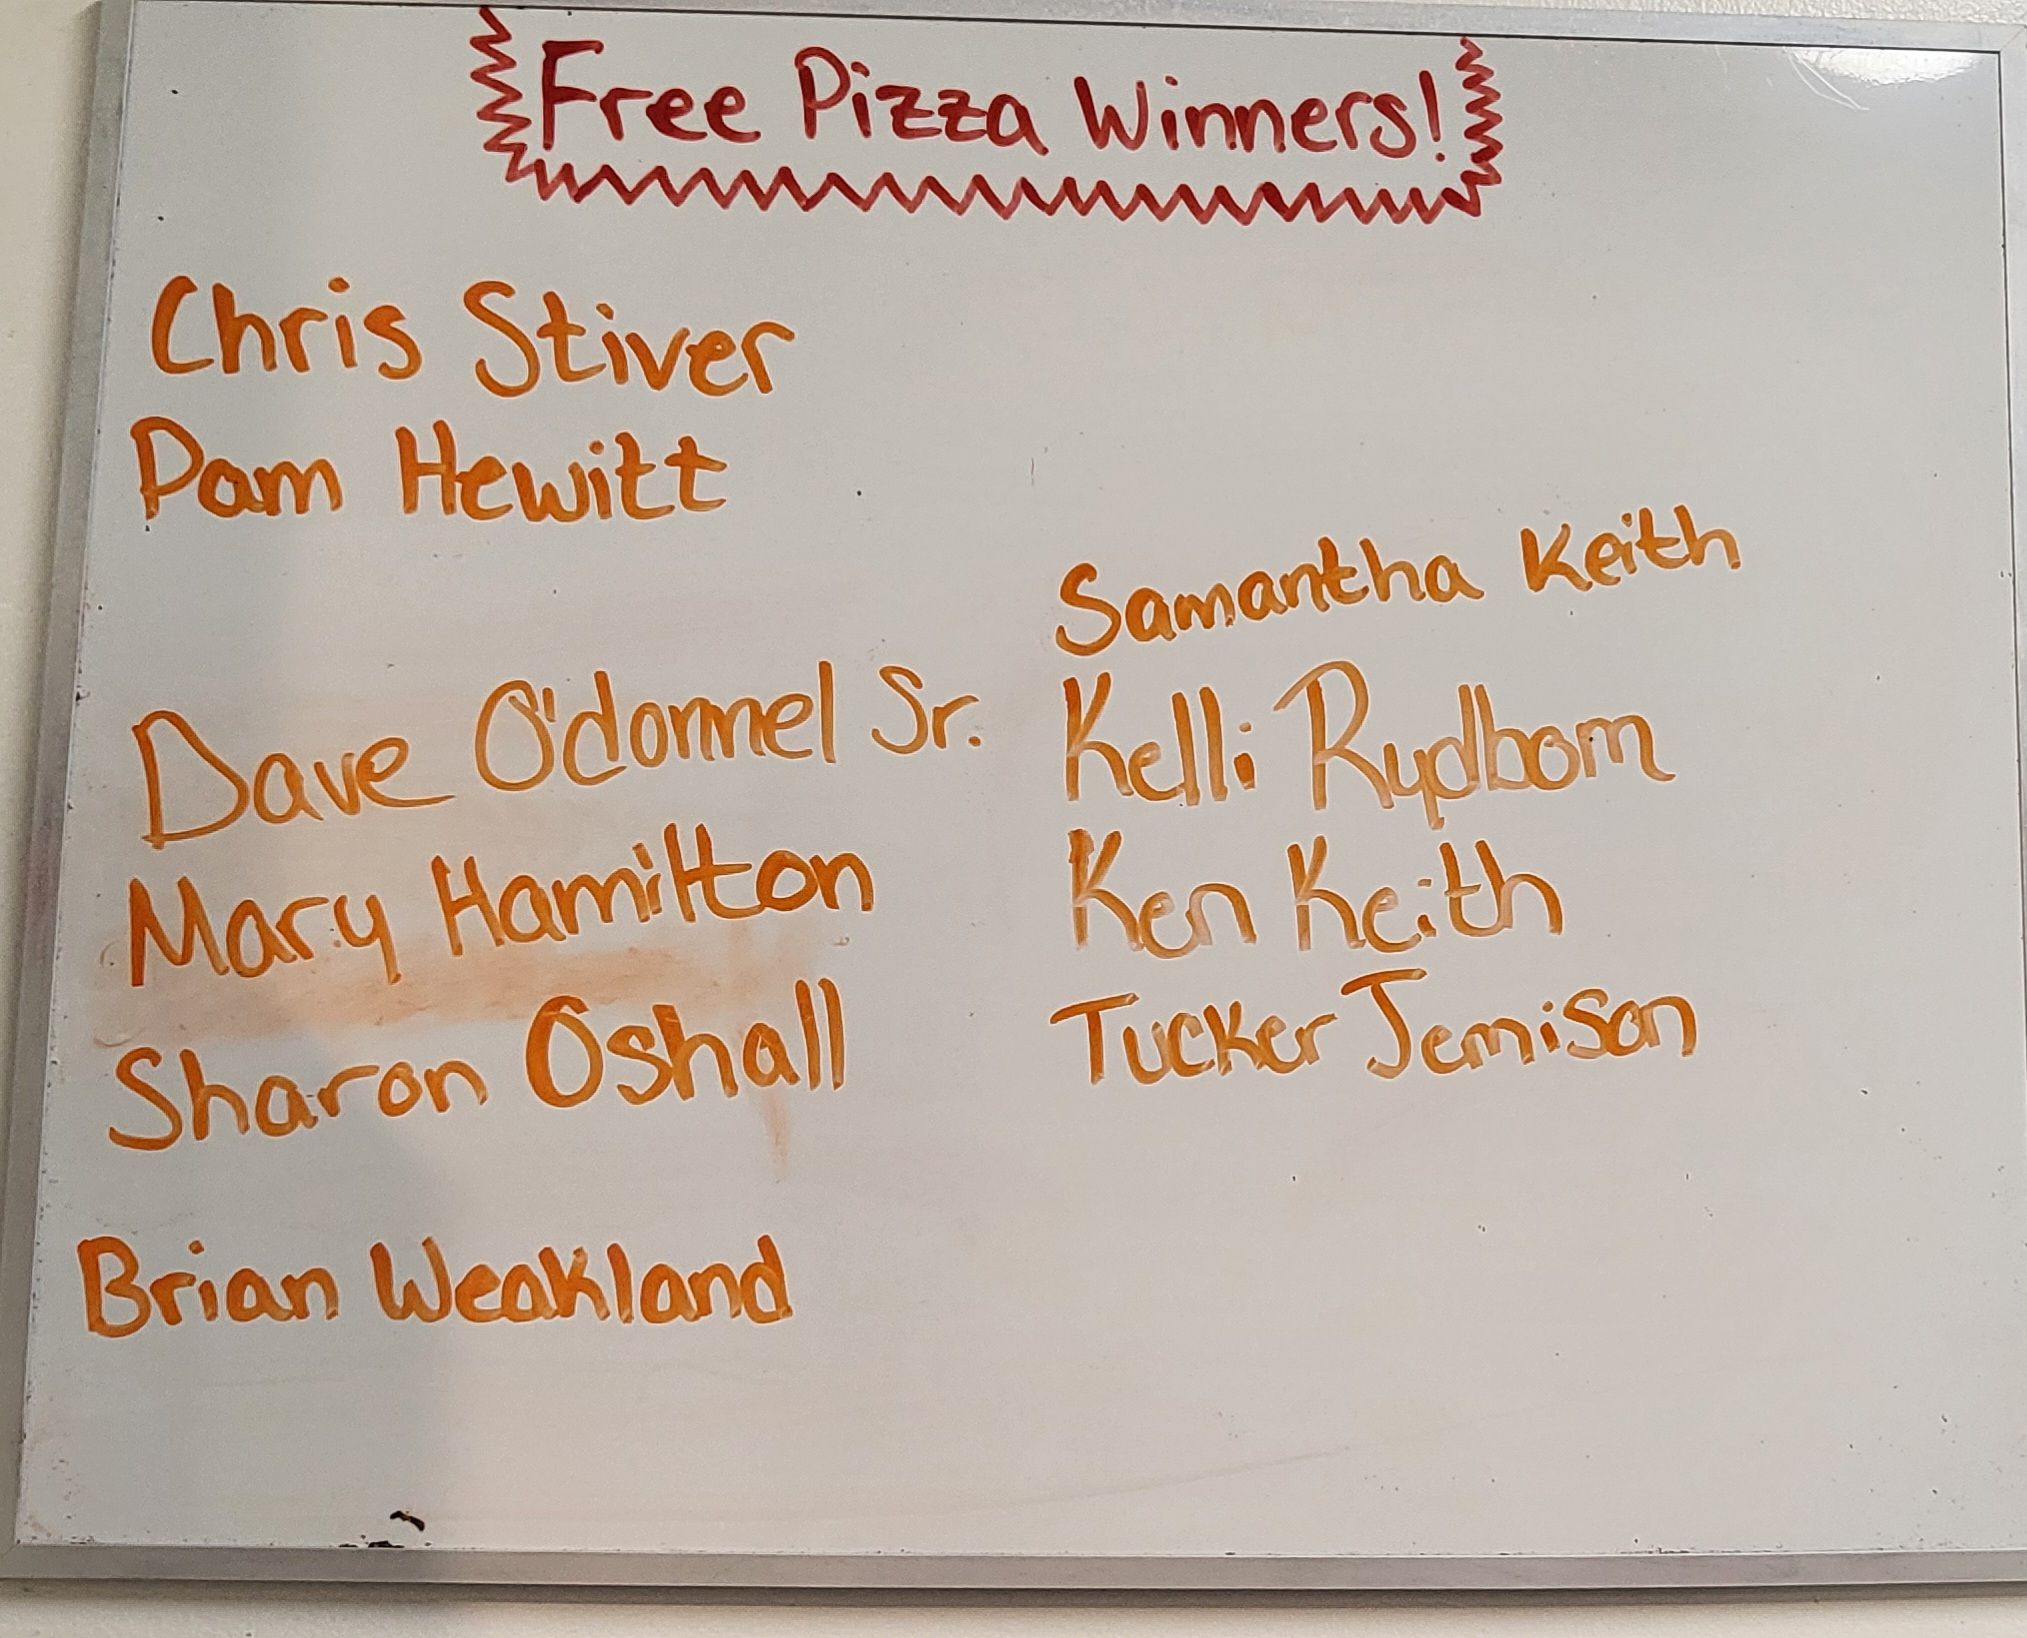 Free Pizza Winners!
Chris Stiver
Pam Hewitt
Dave O'donnel Sr.
Mary Hamilton
Sharon Oshall
Brian Weakland
Samantha Keith
Kelli Rydbom
Ken Keith
Tucker Jemison